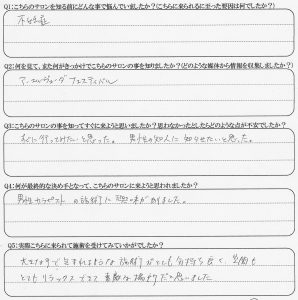 Q1:こちらのサロンを知る前にどんな事で悩んでいましたか?(こちらに来られるに至った要因は何でしたか?)
不妊症
Q2:何を見て、また何がきっかけでこちらのサロンの事を知りましたか?(どのような媒体から情報を収集しましたか?)
アーユルヴェーダ フェスティバル
Q3:こちらのサロンの事を知ってすぐに来ようと思いましたか?思わなかったとしたらどのような点が不安でしたか?
すぐに行ってみたいと思った。 男性の知人に知らせたいと思った。
Q4:何が最終的な決め手となって、こちらのサロンに来ようと思われましたか?
男性セラピストの施術に興味がありました。
Q5:実際こちらに来られて施術を受けてみていかがでしたか?
大きな手で包まれるような施術がとても気持ち良く、空間も
とてもリラックスできて素敵な場所だと思いました。